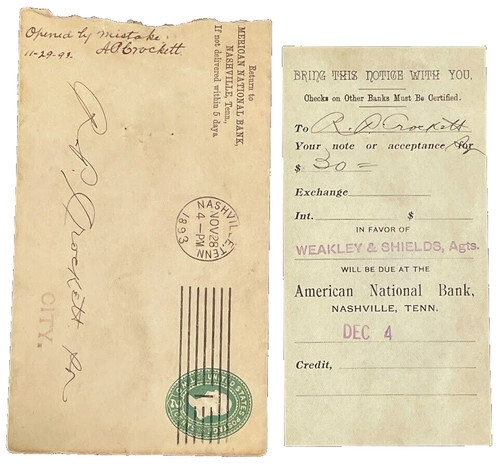 Opened by mistake.
11-29-93. A.P. Crockett.
Return to
AMERICAN NATIONAL BANK,
NASHVILLE, Tenn.,
If not delivered within 5 days
R. P. Crockett
CITY.
NASHVILLE, TENN
NOV 28
4 - PM
1893
UNITED STATES POSTAGE
BRING THIS NOTICE WITH YOU.
Checks on Other Banks Must Be Certified.
To R. P. Crockett
Your note or acceptance for
$ 30=
Exchange
Int. $
IN FAVOR OF
WEAKLEY & SHIELDS, Agts.
WILL BE DUE AT THE
American National Bank,
NASHVILLE, TENN.
DEC 4
Credit,